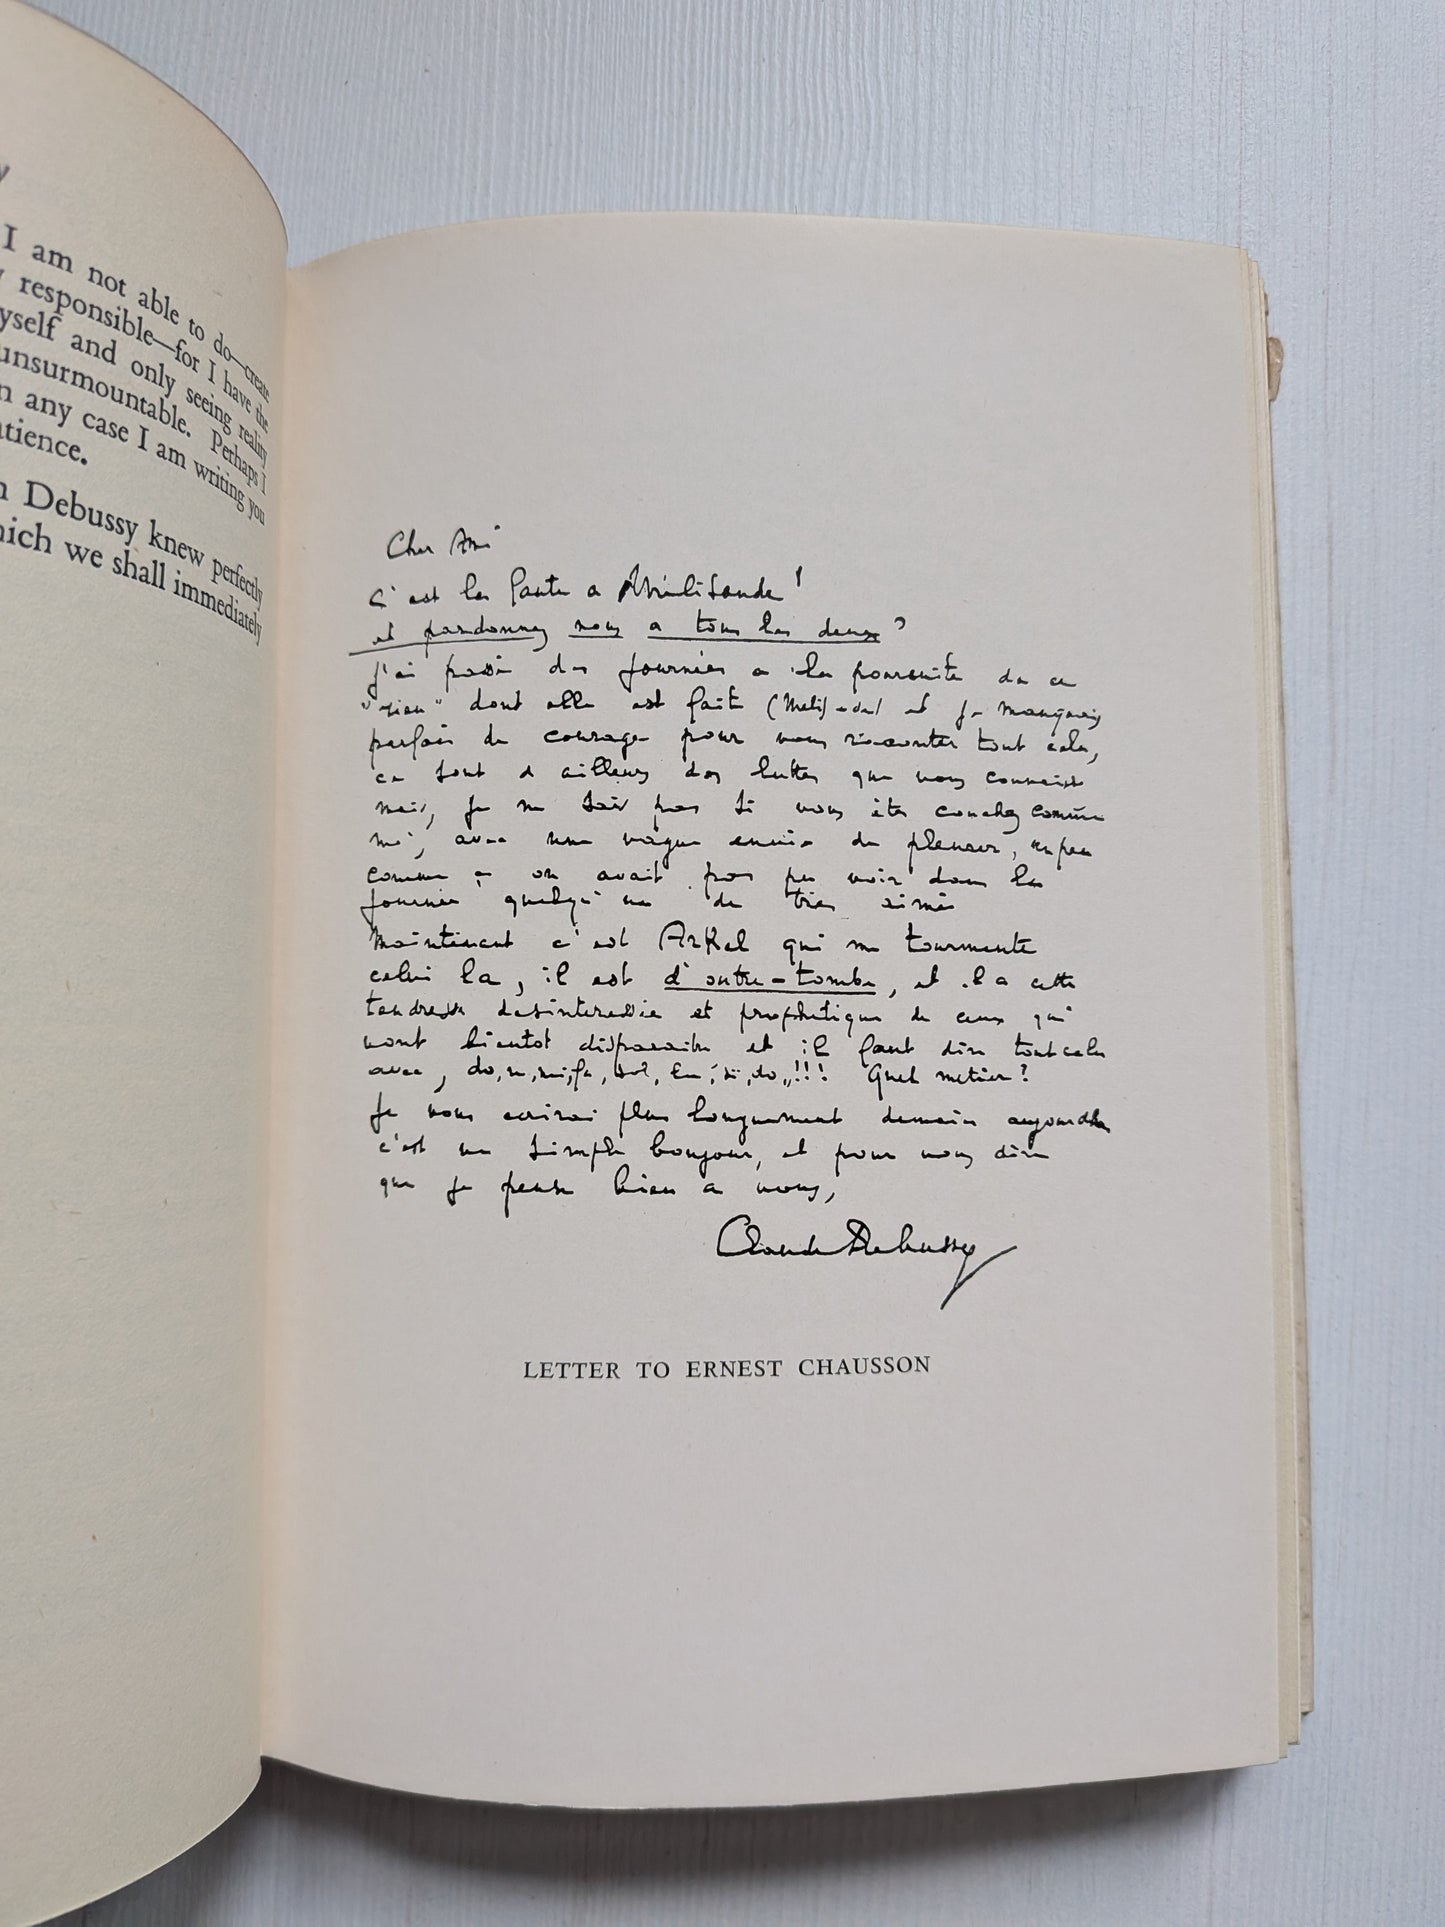 I am not able to do—create
responsible—for I have the
yself and only seeing reality
unsurmountable. Perhaps I
n any case I am writing you
atience.
Debussy knew perfectly
hich we shall immediately
Cher Ami
C'est la faute a Mélisande!
et pardonnez nous a tous les deux?
J'ai passé des journées a la poursuite de ce
"rien" dont elle est faite (Mélisande) et je manquais
parfois de courage pour vous raconter tout cela,
ce sont d'ailleurs des luttes que vous connaissez
mais, je ne sais pas si vous êtes couchez comme
moi, avec une vague envie de pleurer, un peu
comme si on avait pas pu voir dans la
journée quelqu'un de très aimé
Maintenant c'est Arkel qui me tourmente
celui la, il est d'outre-tombe, et il a cette
tendresse desinteressée et prophetique de ceux qui
vont bientot disparaitre et il faut dire tout cela
avec, do, re, mi, fa, sol, la, si, do,,!!! Quel metier?
Je vous ecrirai plus longuement demain
c'est un simple bonjour, et pour vous dire
que je pense bien a vous,
Claude Debussy
LETTER TO ERNEST CHAUSSON